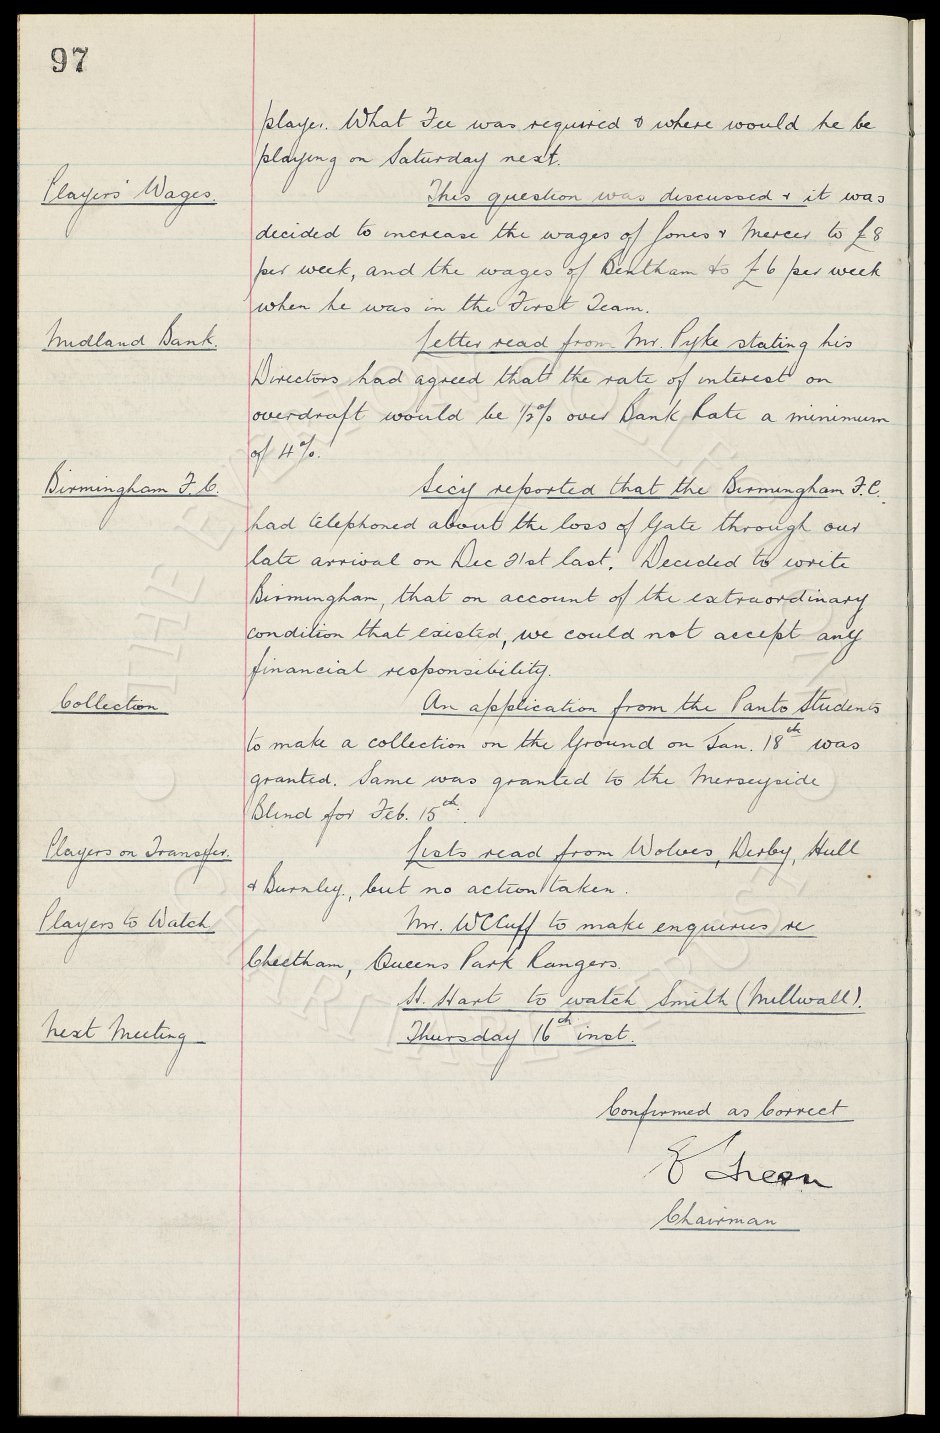 97
player. What Fee was required & where would he be
playing on Saturday next.
Players' Wages. This question was discussed & it was
decided to increase the wages of Jones & Mercer to £8
per week, and the wages of Bentham to £6 per week
when he was in the First Team.
Midland Bank. Letter read from Mr. Pyke stating his
Directors had agreed that the rate of interest on
overdraft would be ½% over Bank Rate a minimum
of 4%.
Birmingham F.C. Secy reported that the Birmingham F.C.
had telephoned about the loss of Gate through our
late arrival on Dec 21st last. Decided to write
Birmingham, that on account of the extraordinary
condition that existed, we could not accept any
financial responsibility.
Collection An application from the Panto Students
to make a collection on the Ground on Jan. 18th was
granted. Same was granted to the Merseyside
Blind for Feb. 15th.
Players on Transfer. Lists read from Wolves, Derby, Hull
& Burnley, but no action taken.
Players to Watch Mr. WCCuff to make enquiries re
Cheetham, Queens Park Rangers.
H. Hart to watch Smith (Millwall).
Next Meeting Thursday 16th inst.
Confirmed as Correct
E Green
Chairman
THE EVERTON COLLECTION
CHARITABLE TRUST